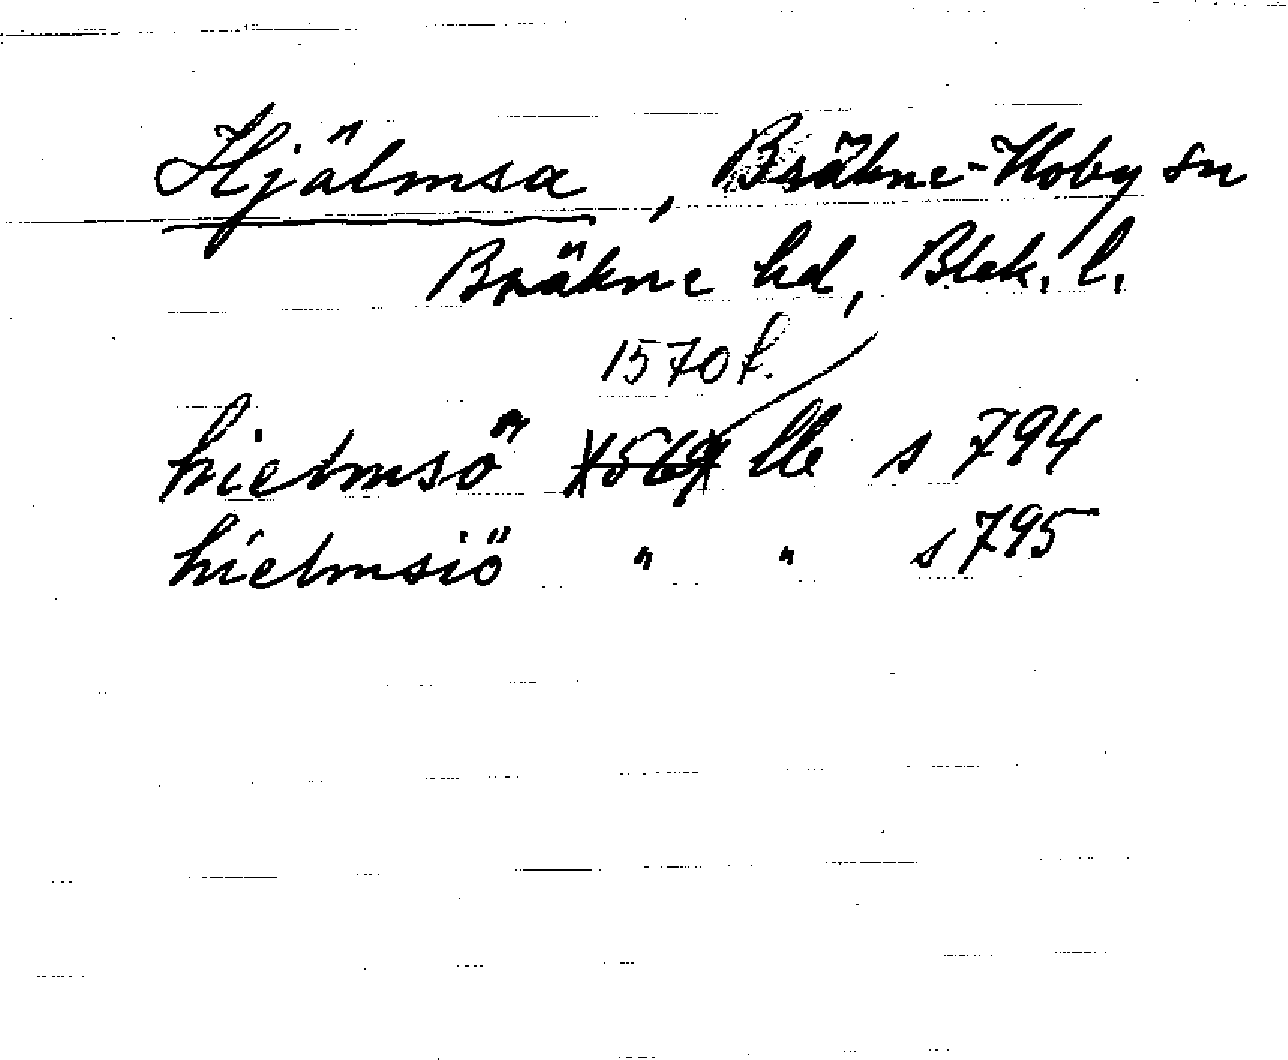 Hjälmsa, Bräkne-Hoby sn
Bräkne hd, Blek. l.
1570 f.
hielmsö 1569 lle s 794
hielmsiö " " s 795